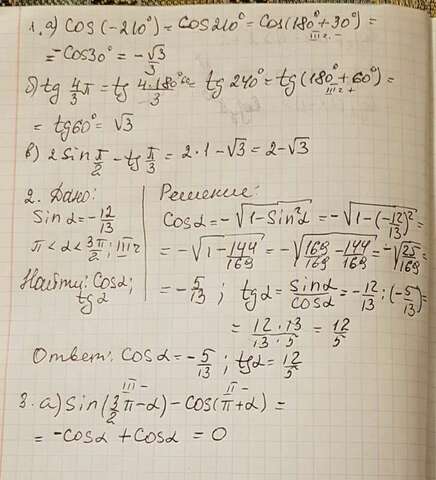 1. а) cos(-210°) = cos210° = cos(180°+30°) =
III ч. -
= -cos30° = -√3/3
б) tg 4/3 π = tg 4·180°/3 = tg 240° = tg(180°+60°) =
III ч +
= tg60° = √3
в) 2 sin π/2 - tg π/3 = 2·1 - √3 = 2-√3
2. Дано:
sin α = -12/13
π < α < 3π/2; III ч
Найти: cosα;
tg α
Решение:
cosα = -√(1-sin²α) = -√(1-(-12/13)²) =
= -√(1-144/169) = -√(169/169-144/169) = -√(25/169) =
= -5/13; tgα = sinα/cosα = -12/13 : (-5/13) =
= 12·13/13·5 = 12/5
Ответ: cosα = -5/13; tgα = 12/5
III - II -
3. а) sin(3/2 π-α) - cos(π+α) =
= -cosα + cosα = 0